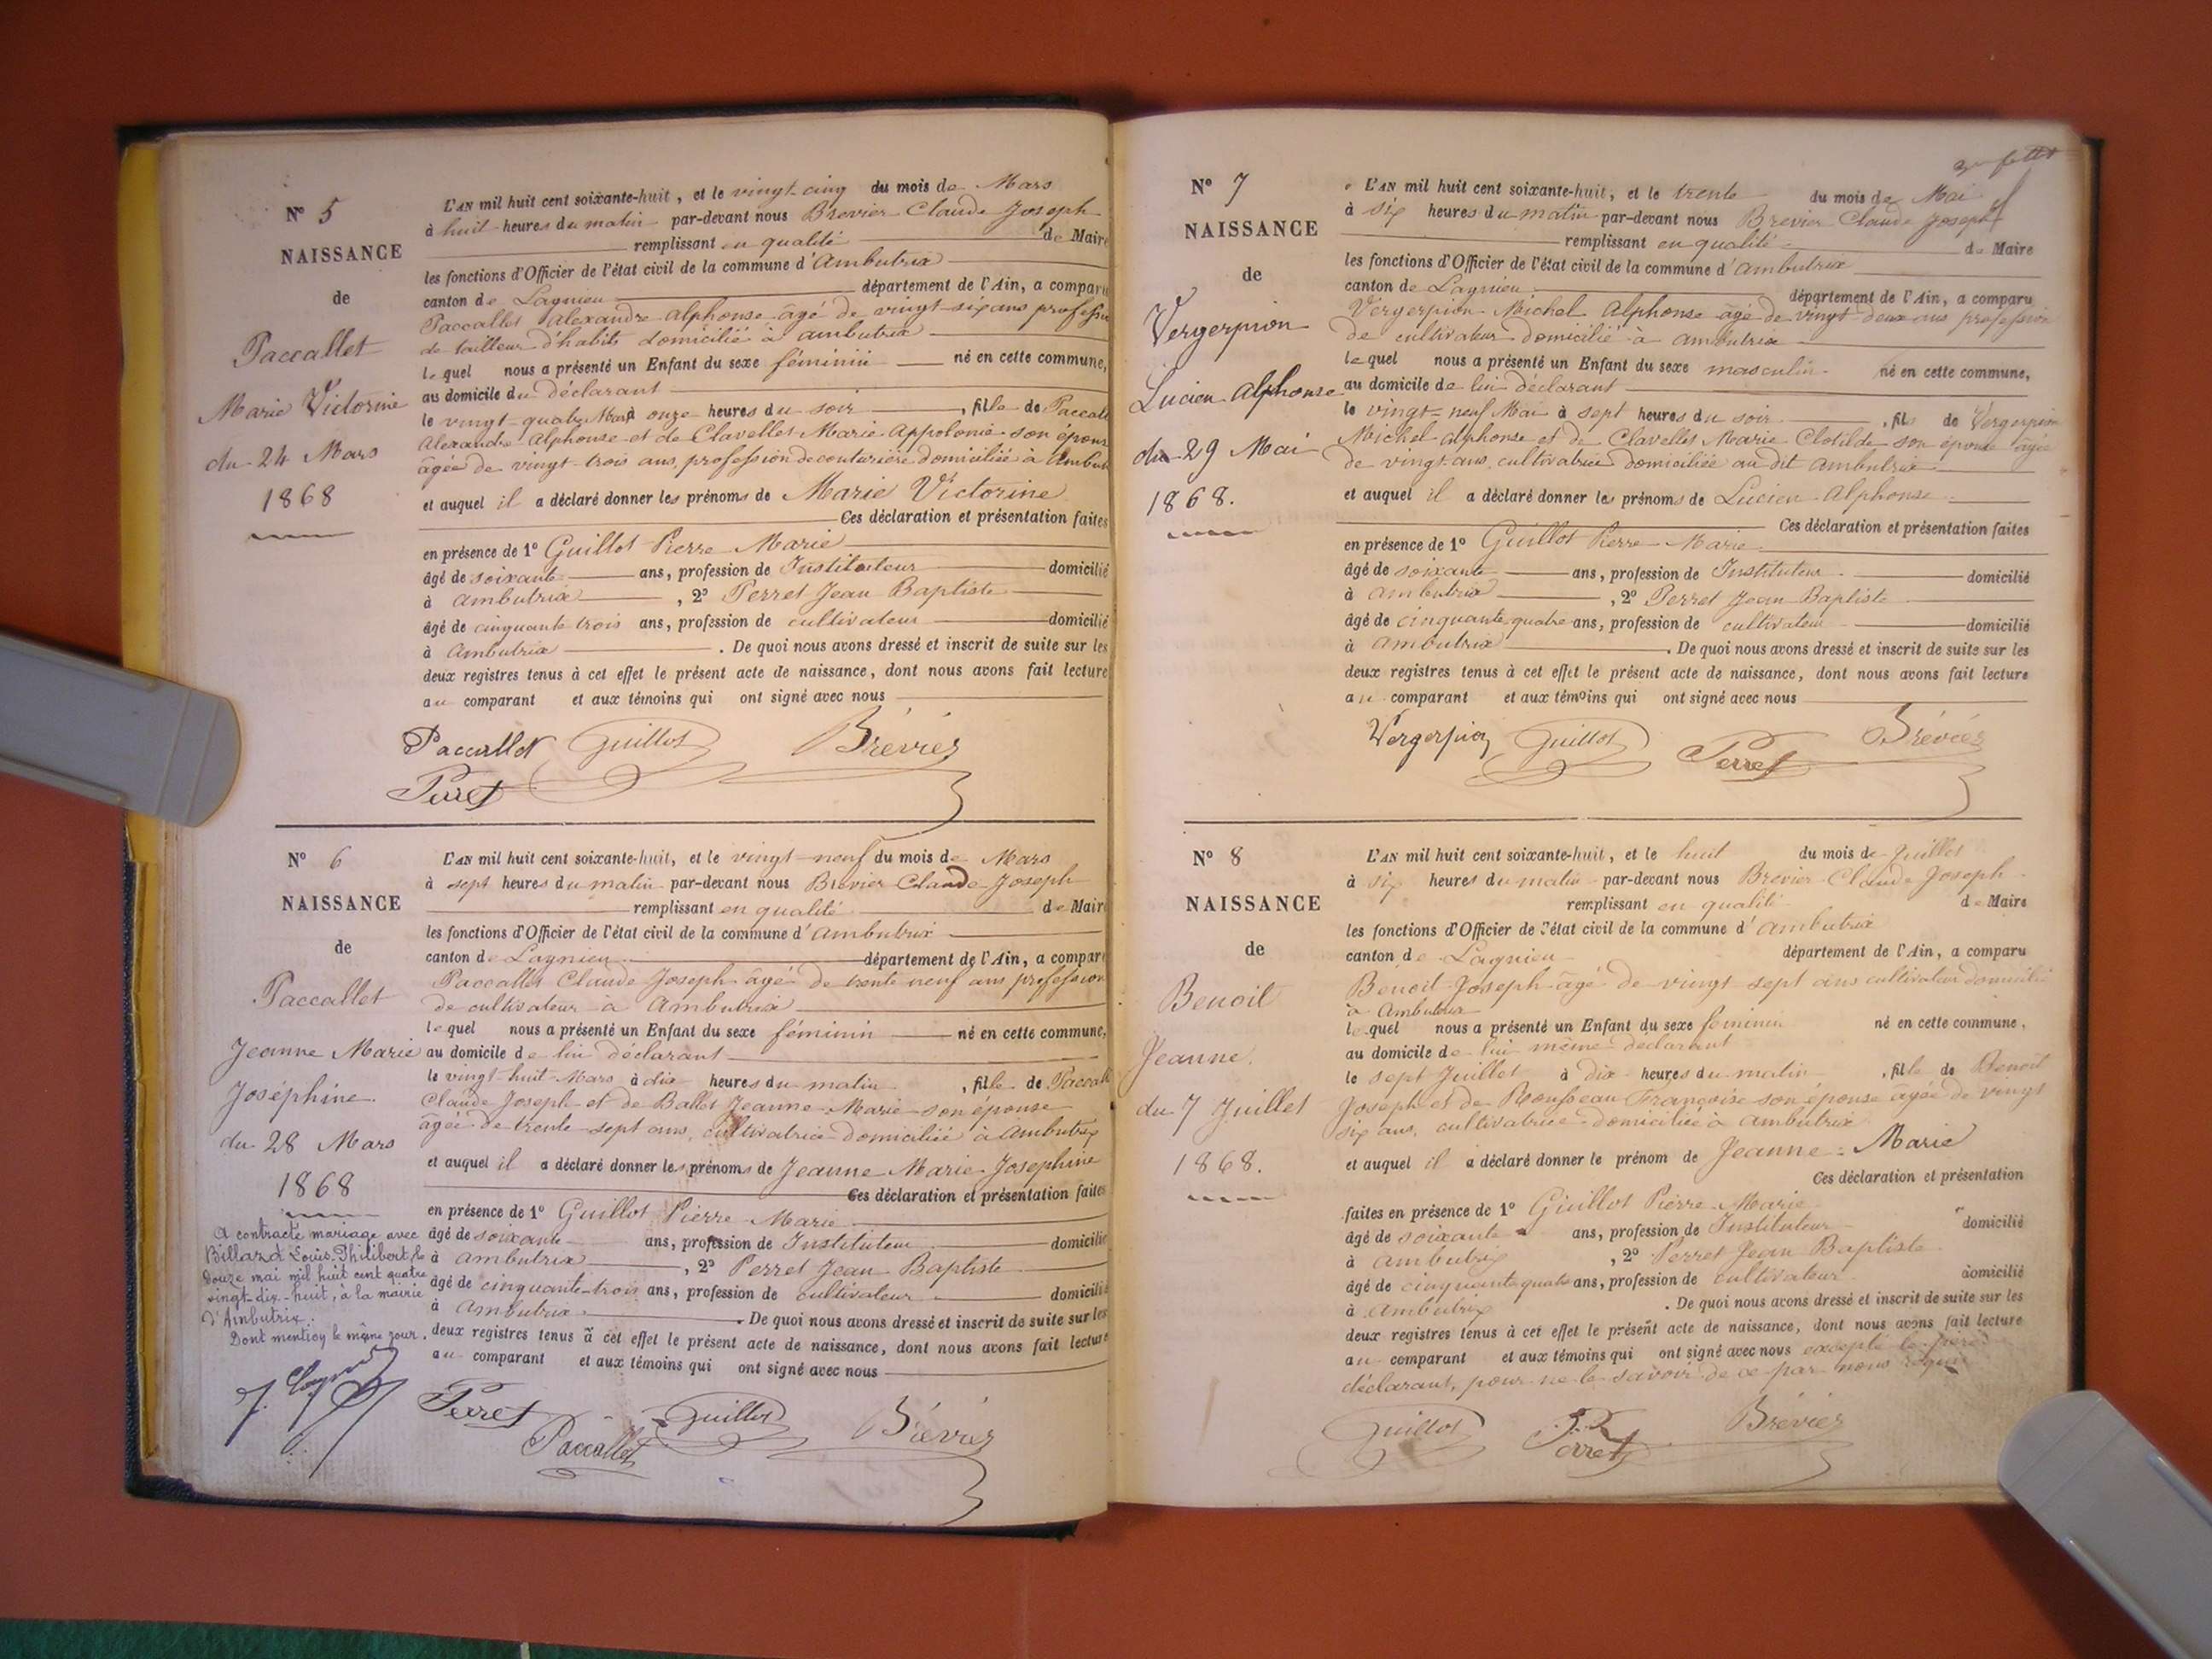 N° 5
NAISSANCE
de
Paccallet
Marie Victorine
du 24 Mars
1868
L'AN mil huit cent soixante-huit, et le vingt-cinq du mois de Mars
à huit heures du matin par-devant nous Brevier Claude Joseph
remplissant en qualité de Maire
les fonctions d'Officier de l'état civil de la commune d'Ambutrix
canton de Lagnieu département de l'Ain, a comparu
Paccallet Alexandre Alphonse âgé de vingt-six ans professio
de tailleur d'habits domicilié à ambutrix
lequel nous a présenté un Enfant du sexe féminin né en cette commune,
au domicile du déclarant
le vingt-quatre Mars à onze heures du soir, fille de Paccall
Alexandre Alphonse et de Clavellet Marie Appolonie son épous
âgée de vingt-trois ans, profession de couturière domiciliée à Ambut
et auquel il a déclaré donner les prénoms de Marie Victorine
Ces déclaration et présentation faites
en présence de 1° Guillot Pierre Marie
âgé de soixante ans, profession de Instituteur domicilié
à ambutrix, 2° Perret Jean Baptiste
âgé de cinquante trois ans, profession de cultivateur domicilié
à Ambutrix. De quoi nous avons dressé et inscrit de suite sur les
deux registres tenus à cet effet le présent acte de naissance, dont nous avons fait lecture
au comparant et aux témoins qui ont signé avec nous
Paccallet Guillot Brévier
Perret
N° 6
NAISSANCE
de
Paccallet
Jeanne Marie
Joséphine.
du 28 Mars
1868
A contracté mariage avec
Billard Louis Philibert, le
douze mai mil huit cent quatre
vingt-dix-huit, à la mairie
d'Ambutrix.
Dont mention le même jour.
L'AN mil huit cent soixante-huit, et le vingt-neuf du mois de Mars
à sept heures du matin par-devant nous Brevier Claude Joseph
remplissant en qualité de Maire
les fonctions d'Officier de l'état civil de la commune d'Ambutrix
canton de Lagnieu département de l'Ain, a comparu
Paccallet Claude Joseph âgé de trente neuf ans profession
de cultivateur à Ambutrix
lequel nous a présenté un Enfant du sexe féminin né en cette commune,
au domicile de lui déclarant
le vingt-huit Mars à dix heures du matin, fille de Paccall
Claude Joseph et de Ballet Jeanne Marie son épouse
âgée de trente-sept ans, cultivatrice domiciliée à Ambutrix
et auquel il a déclaré donner les prénoms de Jeanne Marie Josephine
Ces déclaration et présentation faites
en présence de 1° Guillot Pierre Marie
âgé de soixante ans, profession de Instituteur domicilié
à ambutrix, 2° Perret Jean Baptiste
âgé de cinquante-trois ans, profession de cultivateur domicilié
à Ambutrix. De quoi nous avons dressé et inscrit de suite sur les
deux registres tenus à cet effet le présent acte de naissance, dont nous avons fait lecture
au comparant et aux témoins qui ont signé avec nous
Perret Guillot Brévier
Paccallet
N° 7
NAISSANCE
de
Vergerpion
Lucien Alphonse
du 29 Mai
1868.
L'AN mil huit cent soixante-huit, et le trente du mois de Mai
à six heures du matin par-devant nous Brevier Claude Joseph
remplissant en qualité de Maire
les fonctions d'Officier de l'état civil de la commune d'ambutrix
canton de Lagnieu département de l'Ain, a comparu
Vergerpion Michel Alphonse âgé de vingt-deux ans profession
de cultivateur domicilié à Ambutrix
lequel nous a présenté un Enfant du sexe masculin né en cette commune,
au domicile de lui déclarant
le vingt-neuf Mai à sept heures du soir, fils de Vergerpion
Michel Alphonse et de Clavellet Marie Clotilde son épouse âgée
de vingt ans, cultivatrice domiciliée au dit Ambutrix
et auquel il a déclaré donner les prénoms de Lucien Alphonse
Ces déclaration et présentation faites
en présence de 1° Guillot Pierre Marie
âgé de soixante ans, profession de Instituteur domicilié
à Ambutrix, 2° Perret Jean Baptiste
âgé de cinquante quatre ans, profession de cultivateur domicilié
à Ambutrix. De quoi nous avons dressé et inscrit de suite sur les
deux registres tenus à cet effet le présent acte de naissance, dont nous avons fait lecture
au comparant et aux témoins qui ont signé avec nous
Vergerpion Guillot Perret Brévier
N° 8
NAISSANCE
de
Benoit
Jeanne.
du 7 Juillet
1868.
L'AN mil huit cent soixante-huit, et le huit du mois de Juillet
à six heures du matin par-devant nous Brevier Claude Joseph
remplissant en qualité de Maire
les fonctions d'Officier de l'état civil de la commune d'Ambutrix
canton de Lagnieu département de l'Ain, a comparu
Benoit Joseph âgé de vingt sept ans cultivateur domicilié
à Ambutrix
lequel nous a présenté un Enfant du sexe feminin né en cette commune,
au domicile de lui même declarant
le sept Juillet à dix heures du matin, fille de Benoit
Joseph et de Rousseau Françoise son épouse âgée de vingt
six ans, cultivatrice domiciliée à Ambutrix
et auquel il a déclaré donner le prénom de Jeanne = Marie
Ces déclaration et présentation
faites en présence de 1° Guillot Pierre Marie
âgé de soixante ans, profession de Instituteur domicilié
à Ambutrix, 2° Perret Jean Baptiste
âgé de cinquante quatre ans, profession de cultivateur domicilié
à Ambutrix. De quoi nous avons dressé et inscrit de suite sur les
deux registres tenus à cet effet le présent acte de naissance, dont nous avons fait lecture
au comparant et aux témoins qui ont signé avec nous excepté le père
déclarant, pour ne le savoir de ce par nous requis
Guillot Perret Brévier